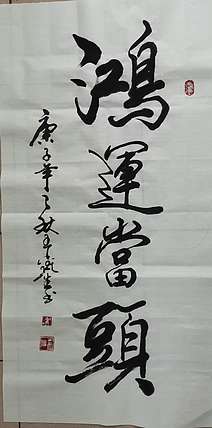 鴻運當頭
庚子年之秋